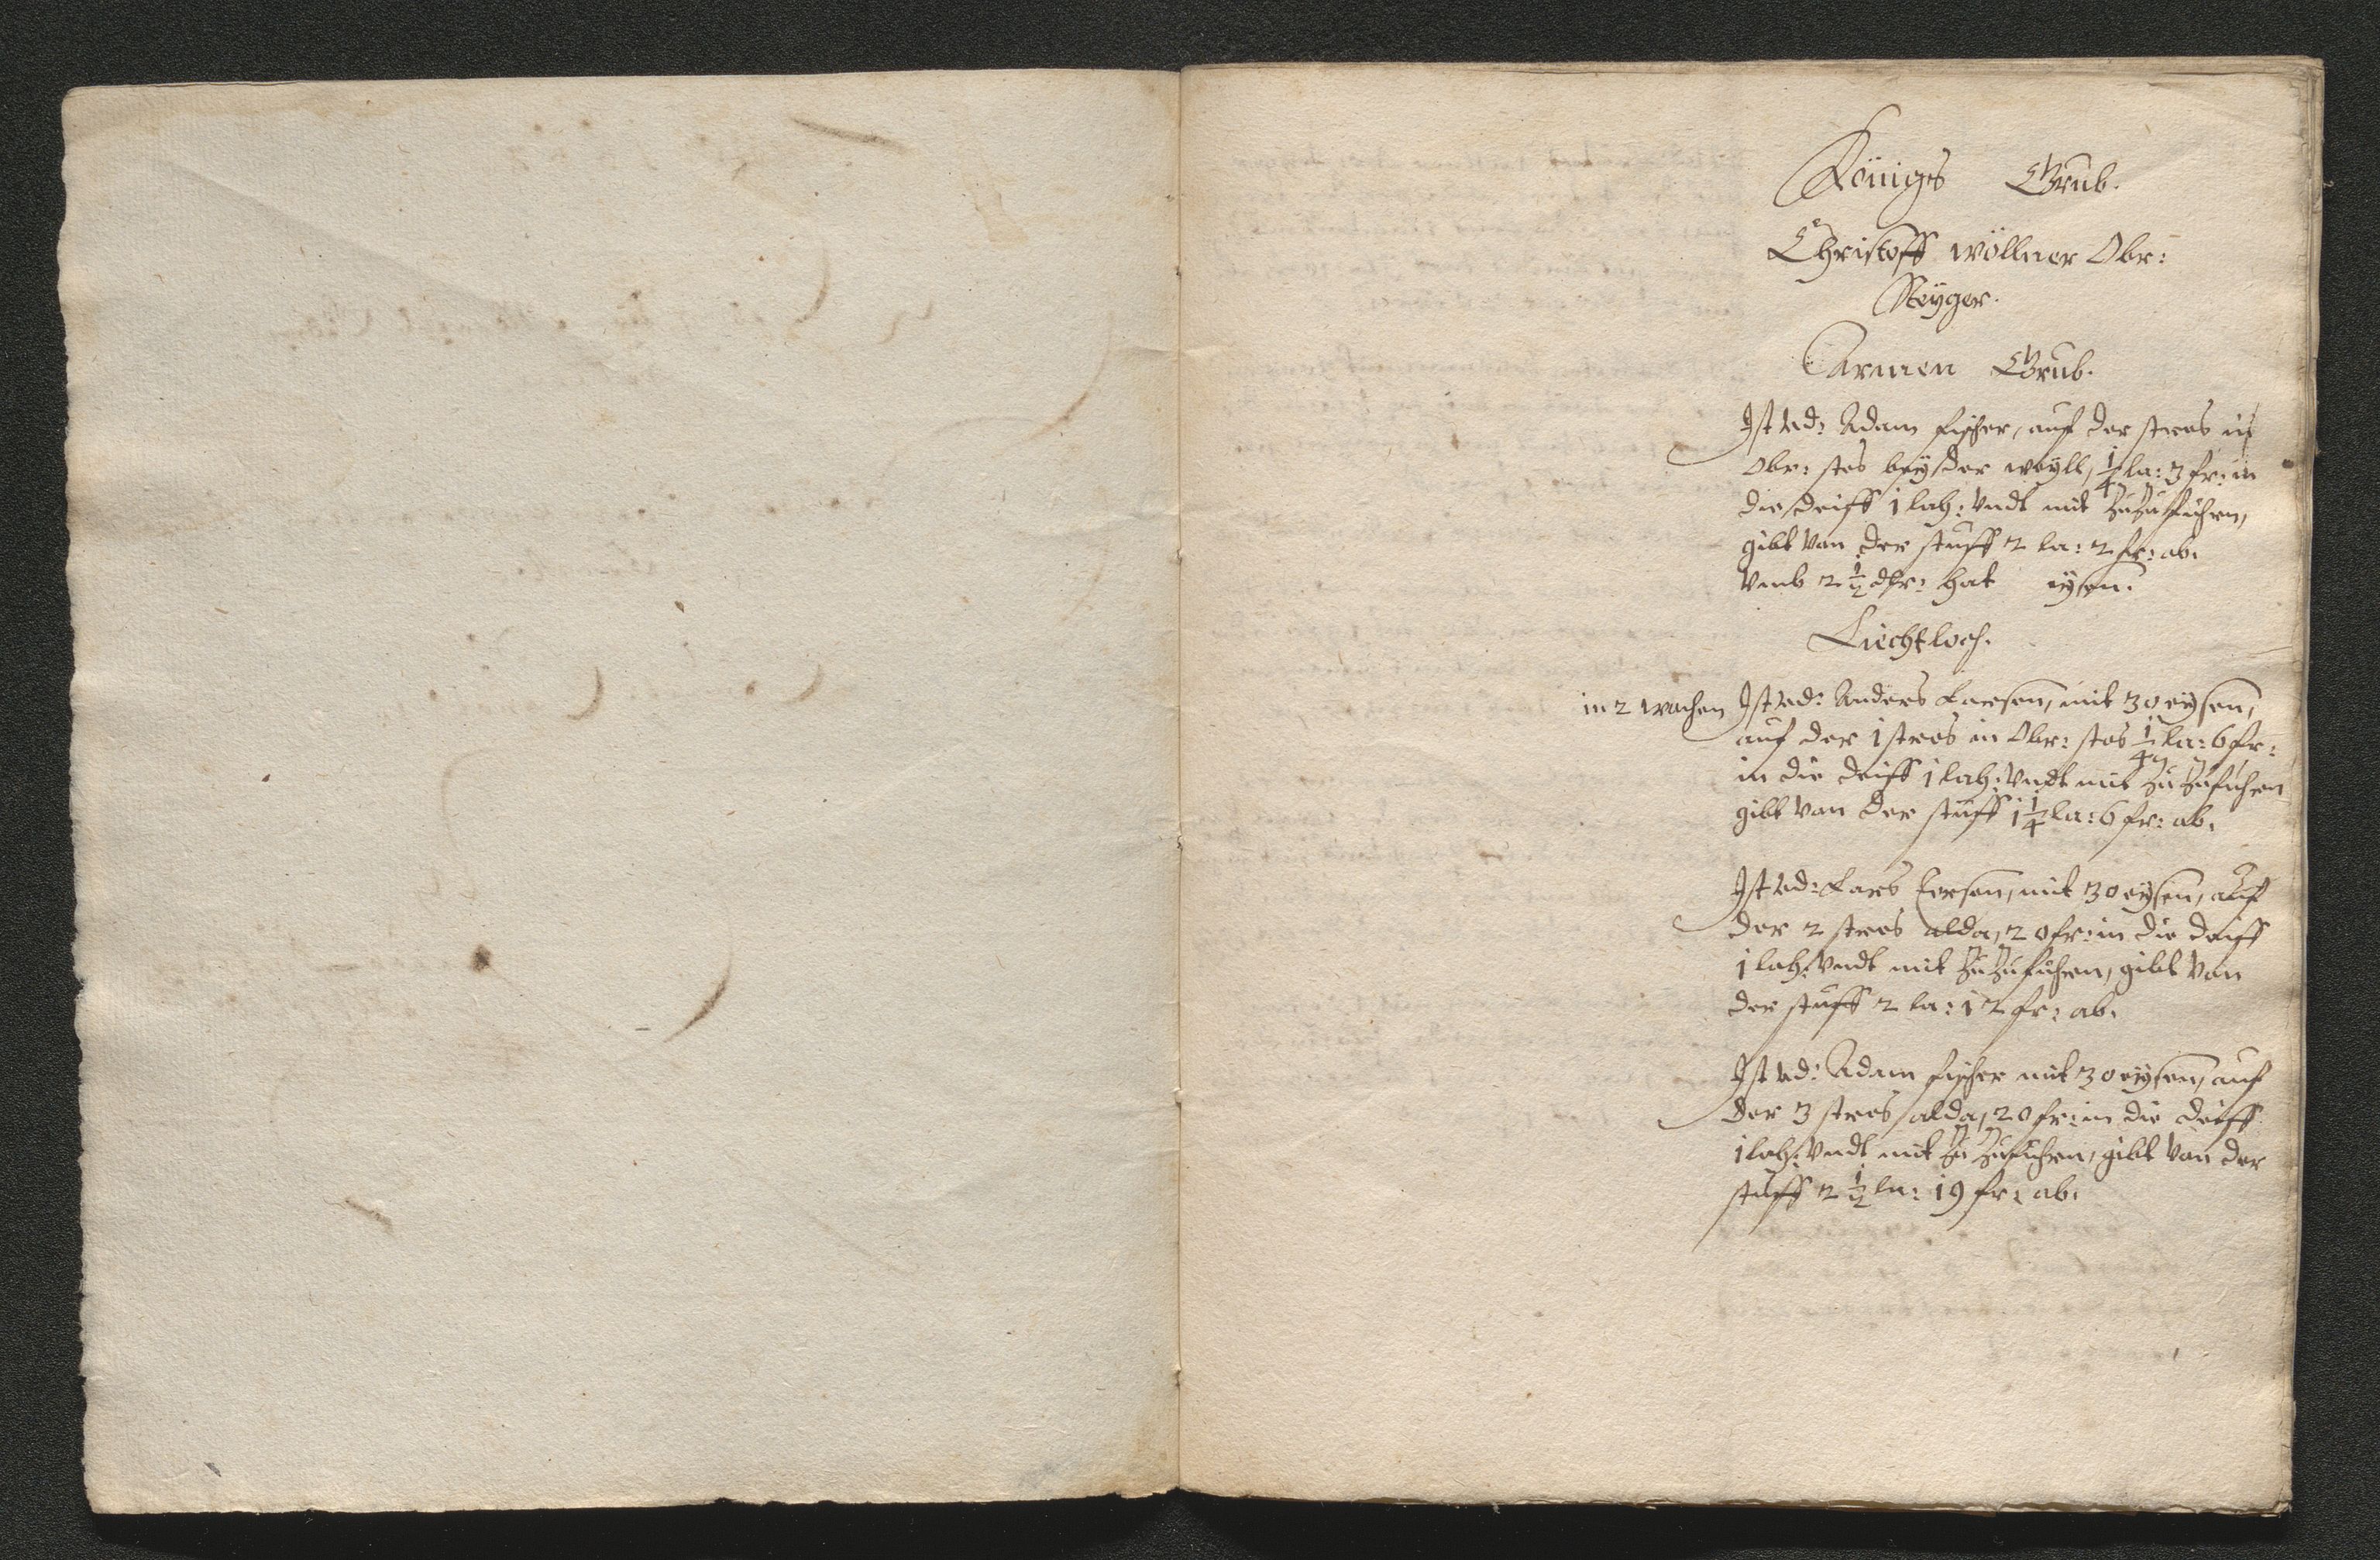 Königs Grub.
Christoff wöllner Obr:
Steÿger.
Armen Grub.
Ist vd: Adam fischer, auf der stros in
Obr: stos beÿ der weÿll, 1/4 la: 3 fr: in
die deiff 1 lah: vndt mit Zu Zufuhren,
gibt von der stuff 2 la: 2 fr: ab.
vmb 2 1/2 dlr: hat eÿsen.
Liechtloch.
in 2 wochen Ist vd: Anders Larsen, mit 30 eÿsen,
auf der 1 stros in Obr: stos 1/4 la: 6 fr:
in die deiff 1 lah: vndt mit Zu Zufuhren
gibt von der stuff 1 1/4 la: 6 fr: ab.
Ist vd: Lars Iersen, mit 30 eÿsen, auf
der 2 stros alda, 20 fr: in die deiff
1 lah: vndt mit Zu Zufuhren, gibt von
der stuff 2 la: 12 fr: ab.
Ist vd: Adam fischer mit 30 eÿsen, auf
der 3 stros alda, 20 fr: in die deiff
1 lah: vndt mit Zu Zufuhren, gibt von der
stuff 2 1/2 la: 19 fr: ab.